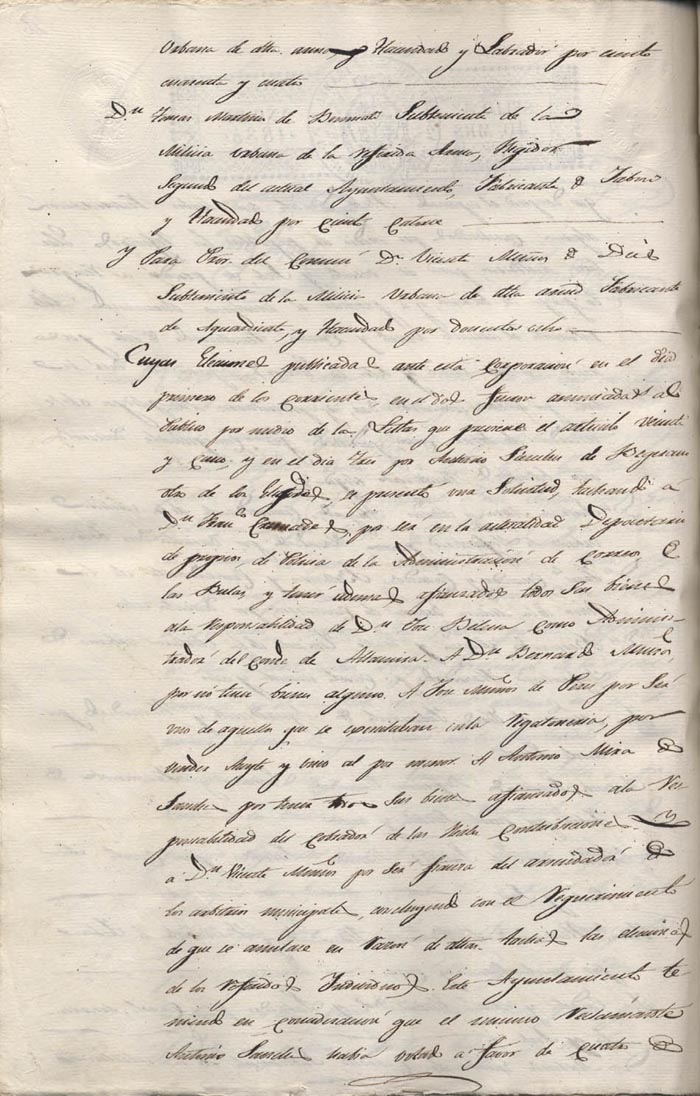 Urbana de dha. arma, y Hacendado y Labrador por ciento
cuarenta y cuatro
Dn. Tomas Subteniente de la
Milicia urbana de la referida Arma, Regidor
Segundo del actual Ayuntamiento, Fabricante de Jabon
y Hacendado por ciento catorce
Y Para Pror. del Comun Dn. Vicente Muños de Dias
Subteniente de la Milicia Urbana de dha arma Fabricante
de Aguardiente, y Hacendado por doscientos ocho
Cuyas Elecciones publicadas ante esta Corporacion en el dia
primero de los corrientes, en el dos fueron anunciadas al
Publico por medio de la Lista que previene el articulo veinte
y cinco, y en el dia tres por Antonio Sanchez de
otro de los Elegidos, se presentó una Solicitud, tachando á
Dn. Franco. pa. ser en la actualidad Depositario
de propios, de Policia de la Administracion de Correos, de
las Bulas, y tener ademas afianzados todos sus bienes
ala responsabilidad de Dn. Jose como Adminis-
trador del Conde de Altamira. A Dn. Bernardo Muños
por no tener bienes algunos. A Jose Muños de Peres por Ser
uno de aquellos que se en la , por
vender Aceyte y vino al por menor. A Antonio Mira de
Sanchez por tener todos sus bienes afianzados ala Res-
ponsabilidad del Cobrador de las Reales Contribuciones. Y
a Dn. Vicente Muños por Ser fiador del arrendador de
los arbitrios municipales, concluyendo con el Requerimiento
de que se anulase en razon de dhas. tachas las elecciones
de los referidos Individuos. Este Ayuntamiento te-
niendo en consideracion que el mismo Reclamante
Antonio Sanchez habia votado a favor de cuatro de